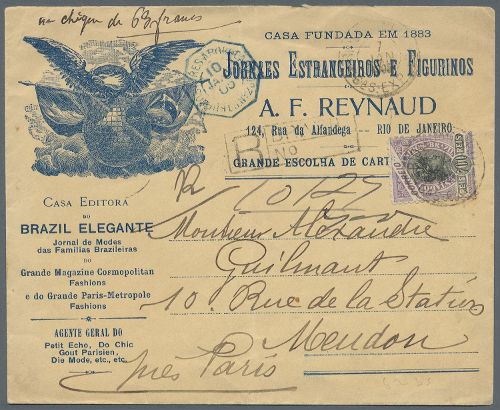 un chèque de 63 francs
CASA FUNDADA EM 1883
JORNAES ESTRANGEIROS E FIGURINOS
A. F. REYNAUD
124, Rua da Alfandega — RIO DE JANEIRO
GRANDE ESCOLHA DE CART
R
No
R
CASA EDITORA
DO
BRAZIL ELEGANTE
Jornal de Modas
das Familias Brazileiras
DO
Grande Magazine Cosmopolitan
Fashions
e do Grande Paris-Metropole
Fashions
AGENTE GERAL DO
Petit Echo, Do Chic
Gout Parisien,
Die Mode, etc., etc.
Monsieur Alexandre
Guilmant
10. Rue de la Station
Meudon
près Paris